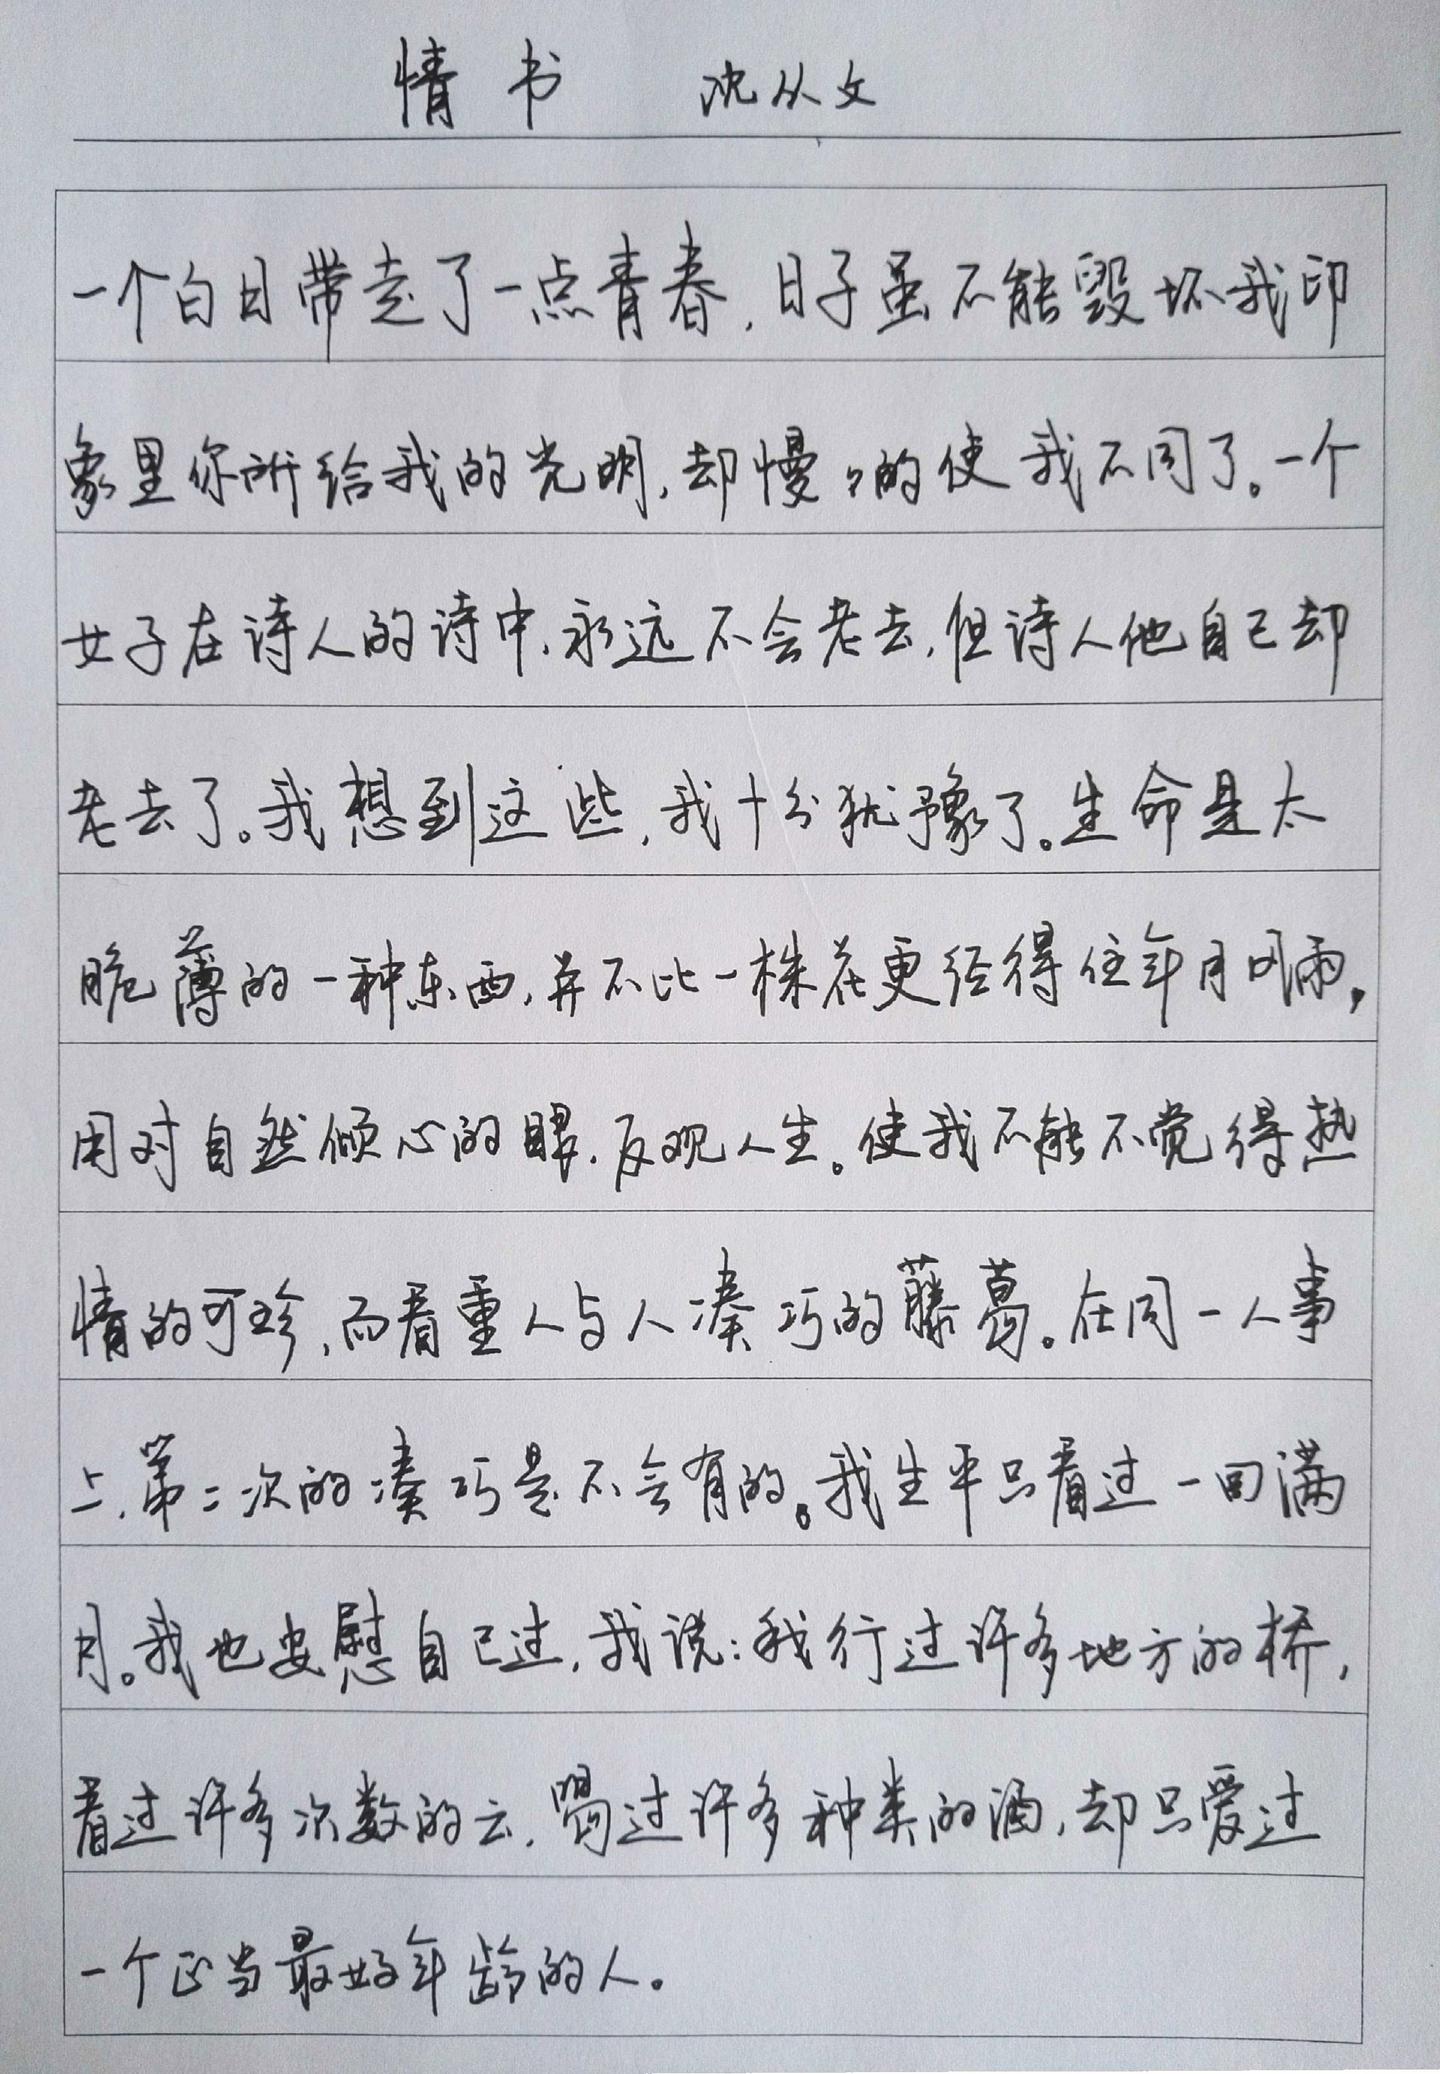 情书 沈从文
一个白日带走了一点青春，日子虽不能毁坏我印
象里你所给我的光明，却慢々的使我不同了。一个
女子在诗人的诗中，永远不会老去，但诗人他自己却
老去了。我想到这些，我十分犹豫了。生命是太
脆薄的一种东西，并不比一株花更经得住年月风雨，
用对自然倾心的眼，反观人生。使我不能不觉得热
情的可珍，而看重人与人凑巧的藤葛。在同一人事
上，第二次的凑巧是不会有的。我生平只看过一回满
月。我也安慰自己过，我说：我行过许多地方的桥，
看过许多次数的云，喝过许多种类的酒，却只爱过
一个正当最好年龄的人。